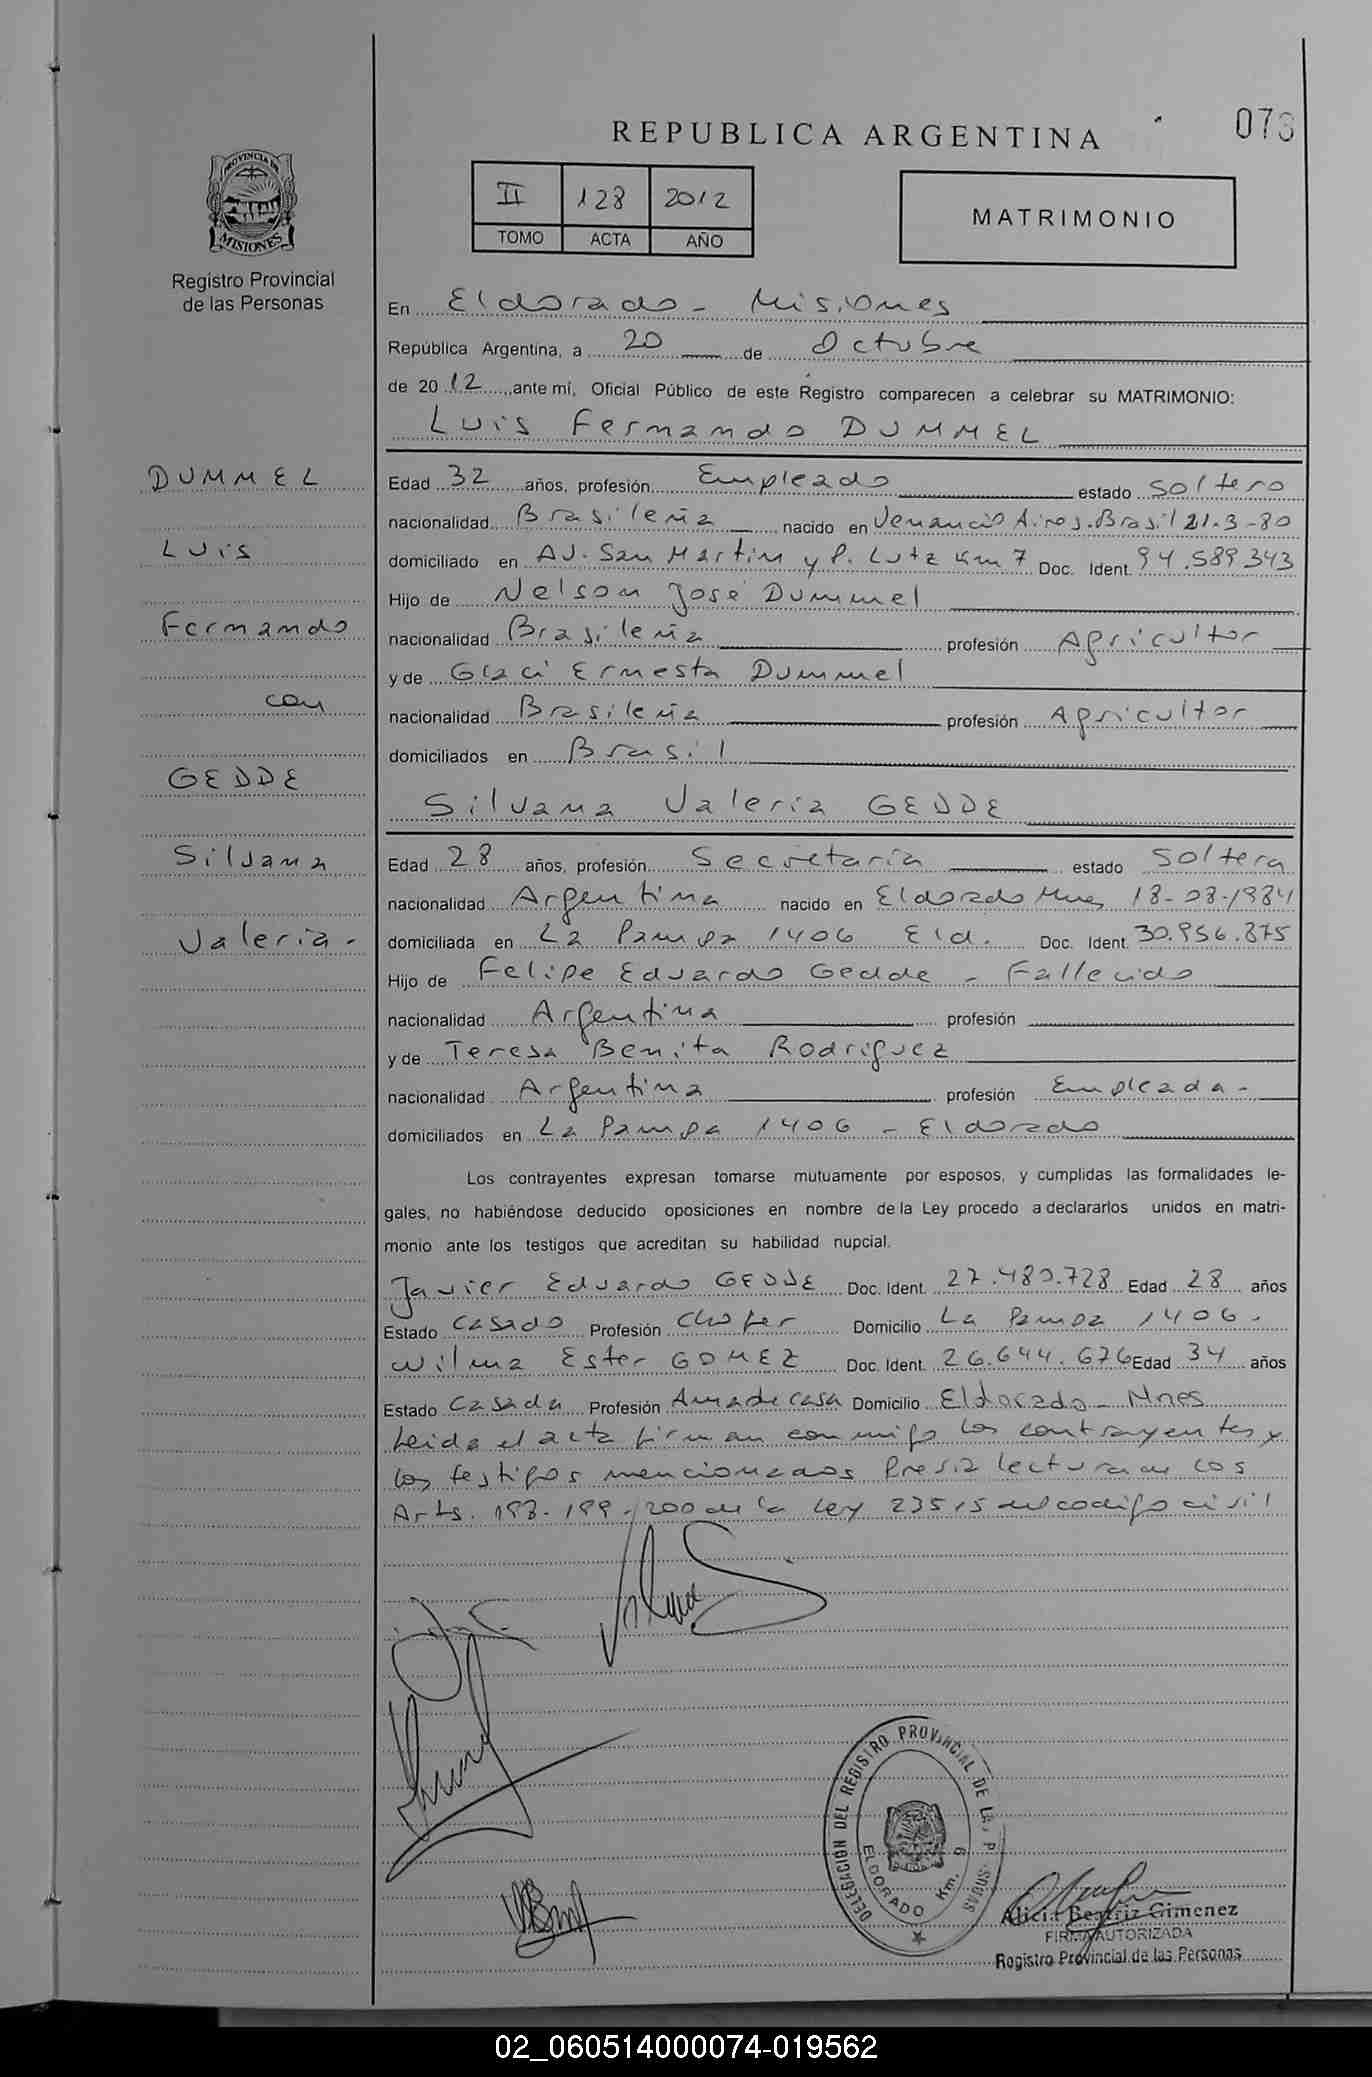 REPUBLICA ARGENTINA
073
PROVINCIA DE
MISIONES
Registro Provincial
de las Personas
II 128 2012
TOMO ACTA AÑO
MATRIMONIO
En Eldorado - Misiones
República Argentina, a 20 de Octubre
de 2012, ante mí, Oficial Público de este Registro comparecen a celebrar su MATRIMONIO:
Luis Fernando DUMMEL
DUMMEL
Luis
Fernando
con
GEDDE
Silvana
Valeria.
Edad 32 años, profesión Empleado estado soltero
nacionalidad Brasileña nacido en Venancio Aires. Brasil 21-3-80
domiciliado en Av. San Martin y P. Lutz Km 7 Doc. Ident. 94.589.343
Hijo de Nelson José Dummel
nacionalidad Brasileña profesión Agricultor
y de Glaci Ernesta Dummel
nacionalidad Brasileña profesión Agricultor
domiciliados en Brasil
Silvana Valeria GEDDE
Edad 28 años, profesión Secretaria estado Soltera
nacionalidad Argentina nacido en Eldorado Mnes 18-08-1984
domiciliada en La Pampa 1406 Eld. Doc. Ident. 30.956.875
Hijo de Felipe Eduardo Gedde - Fallecido
nacionalidad Argentina profesión
y de Teresa Benita Rodriguez
nacionalidad Argentina profesión Empleada -
domiciliados en La Pampa 1406 - Eldorado
Los contrayentes expresan tomarse mutuamente por esposos, y cumplidas las formalidades le-
gales, no habiéndose deducido oposiciones en nombre de la Ley procedo a declararlos unidos en matri-
monio ante los testigos que acreditan su habilidad nupcial.
Javier Eduardo GEDDE Doc. Ident. 27.480.728 Edad 28 años
Estado Casado Profesión Chofer Domicilio La Pampa 1406.
Wilma Ester GOMEZ Doc. Ident. 26.644.676 Edad 34 años
Estado Casada Profesión Ama de casa Domicilio Eldorado - Mnes
Leida el acta firman conmigo los contrayentes y
los testigos mencionados Previa lectura de los
Arts. 198-199-200 de la Ley 23515 del codigo civil
DELEGACION DEL REGISTRO PROVINCIAL DE LAS PERSONAS
ELDORADO Km. 9
Alicia Beatriz Gimenez
FIRMA AUTORIZADA
Registro Provincial de las Personas
02_060514000074-019562